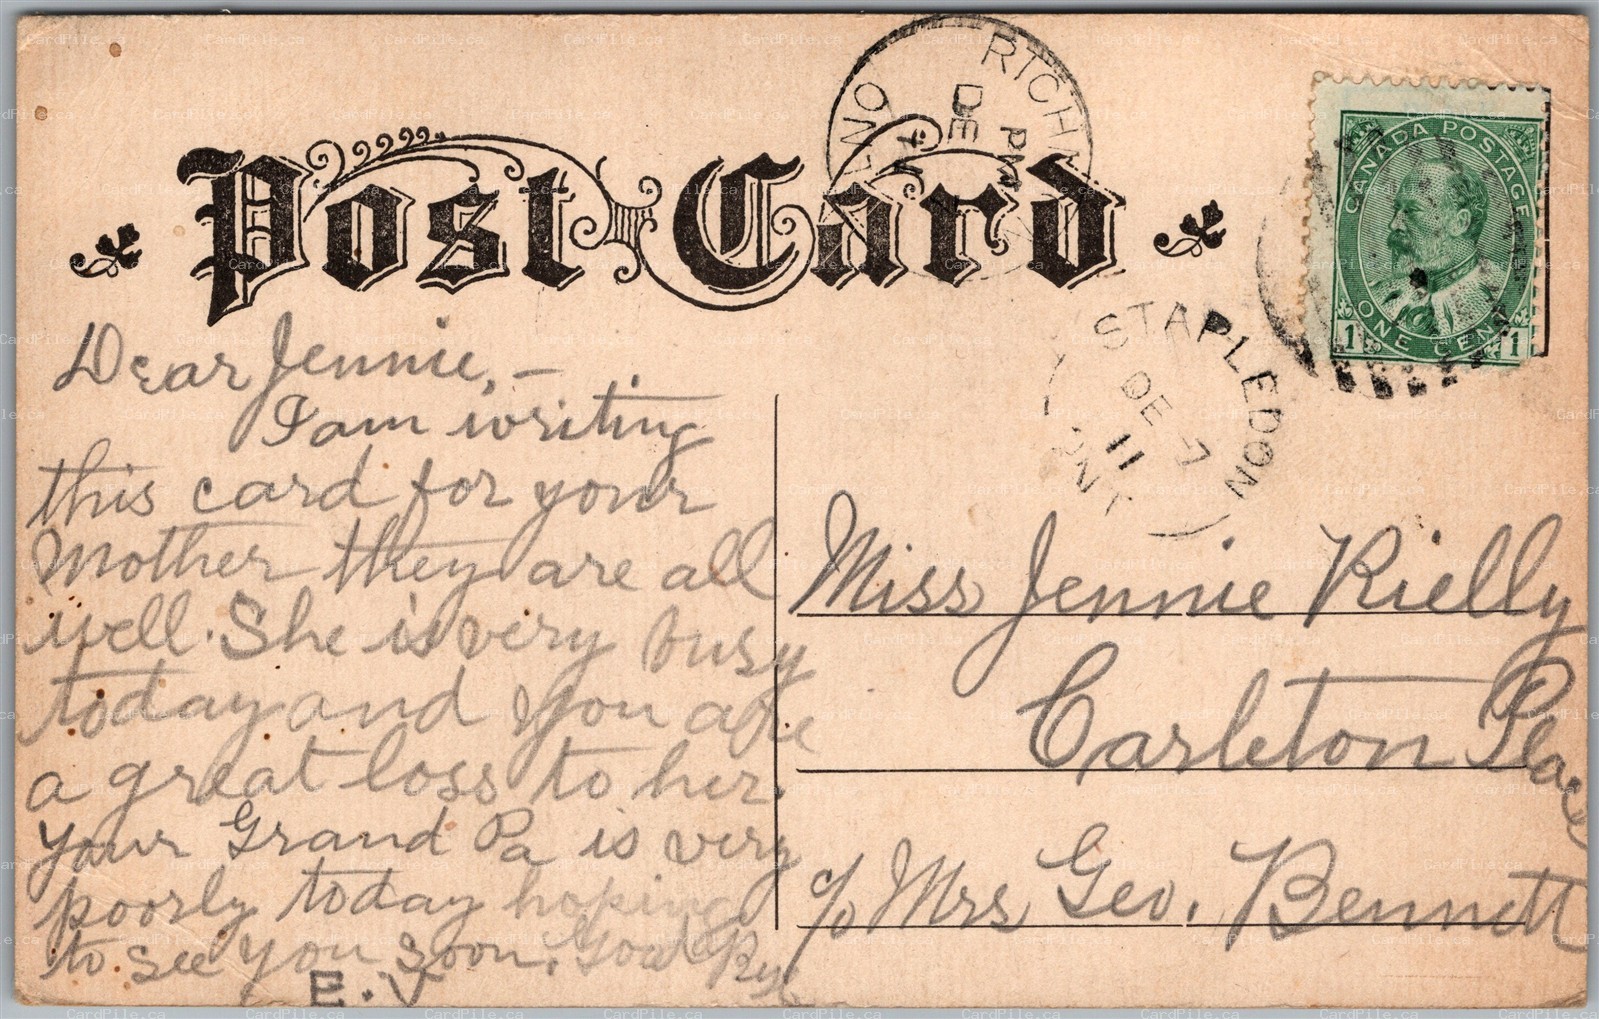 Post Card
RICHM
ONT
DE
PM
CANADA POSTAGE
ONE CENT
1 1
STAPLEDON
DE 7
11
ONT
Dear Jennie, –
I am writing
this card for your
Mother they are all
well. She is very busy
today and you are
a great loss to her.
your Grand Pa is very
poorly today hoping
to see you soon. Good Bye
E.V
Miss Jennie Rielly
Carleton Place
c/o Mrs Geo. Bennett
CardPile.ca